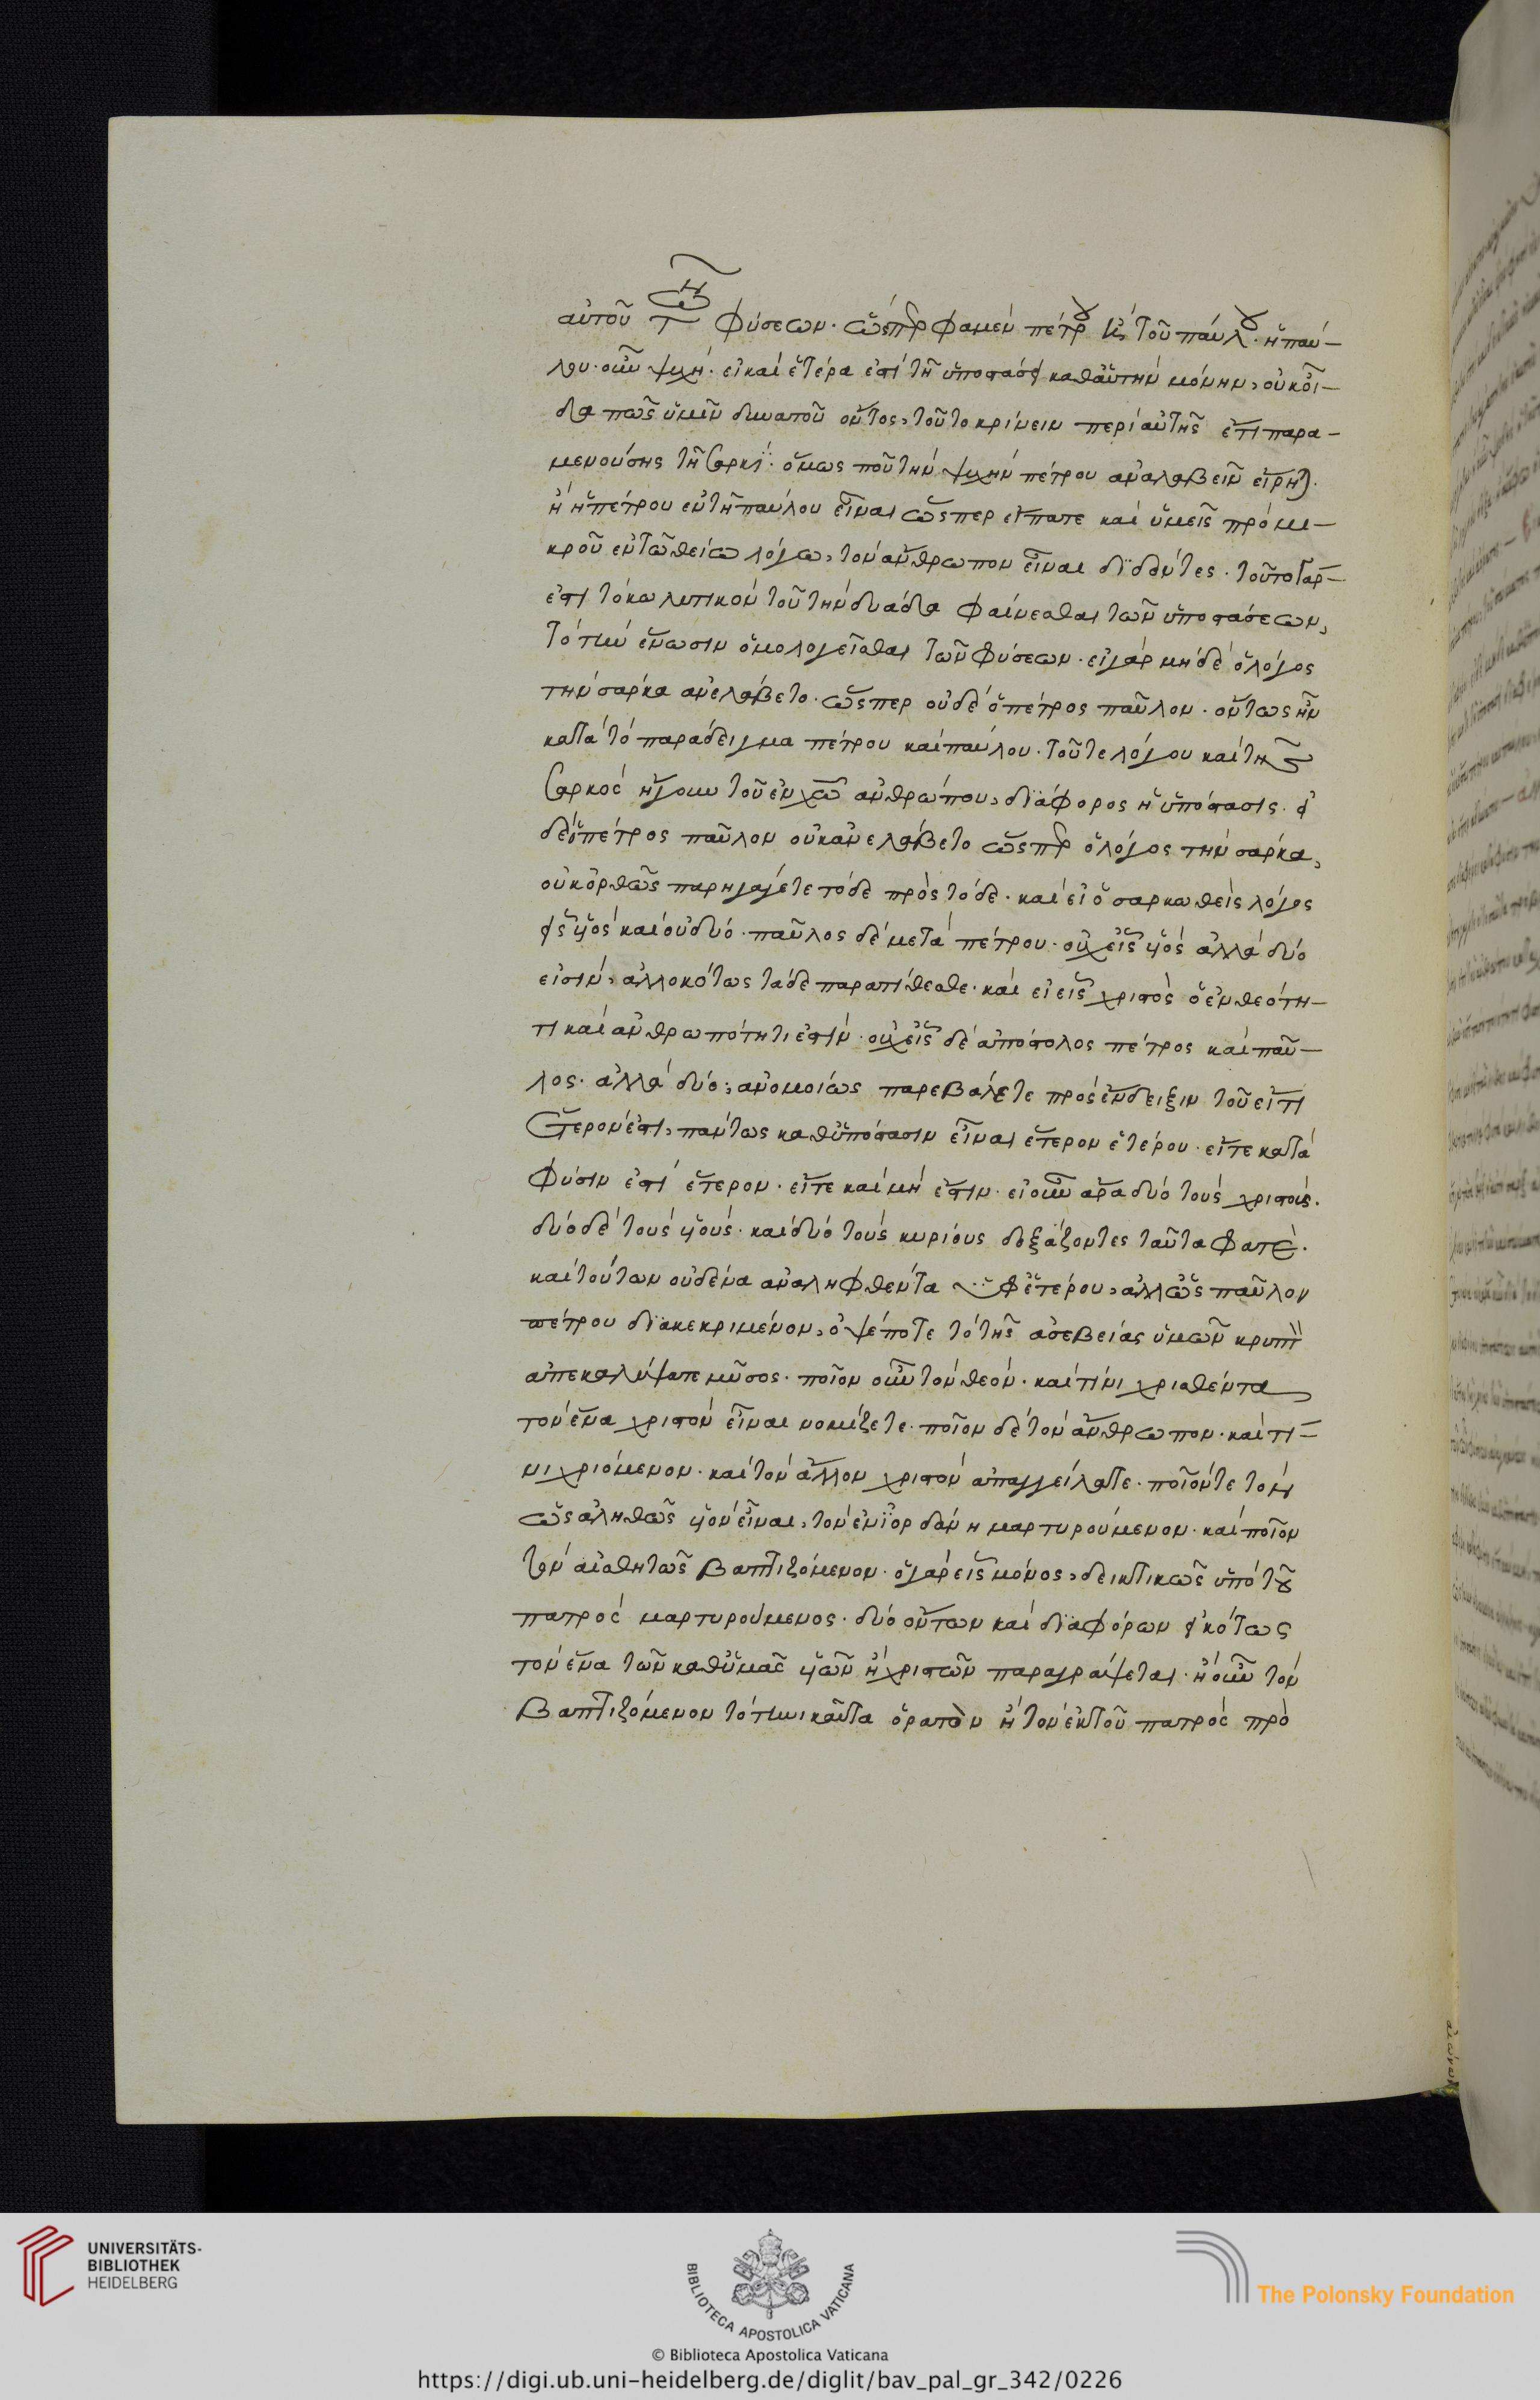 αὐτοῦ τῶν φύσεων· ὥσπερ φαμὲν πέτρου καὶ τοῦ παύλου· ἡ παύ-
λου οὖν ψυχή· εἰ καὶ ἑτέρα ἐστὶ τῇ ὑποστάσει καθ' αὑτὴν μόνην, οὐκ οἶ-
δα πῶς ὑμῖν δυνατοῦ ὄντος, τοῦτο κρίνειν περὶ αὐτῆς ἔτι παρα-
μενούσης τῇ σαρκί· ὅμως ποῦ τὴν ψυχὴν πέτρου ἀναλαβεῖν εἴρηται·
ἢ ἡ πέτρου ἐν τῇ παύλου εἶναι ὥσπερ εἴπατε καὶ ὑμεῖς πρὸ μι-
κροῦ ἐν τῷ θείῳ λόγῳ, τὸν ἄνθρωπον εἶναι διδόντες· τοῦτο γάρ
ἐστι τὸ κωλυτικὸν τοῦ τὴν δυάδα φαίνεσθαι τῶν ὑποστάσεων,
τὸ τὴν ἕνωσιν ὁμολογεῖσθαι τῶν φύσεων· εἰ γὰρ μηδὲ ὁ λόγος
τὴν σάρκα ἀνελάβετο· ὥσπερ οὐδὲ ὁ πέτρος παῦλον· οὕτως ἦν
κατὰ τὸ παράδειγμα πέτρου καὶ παύλου· τοῦ τε λόγου καὶ τῆς
σαρκὸς ἤγουν τοῦ ἐν χῶ ἀνθρώπου, διάφορος ἡ ὑπόστασις· εἰ
δὲ ὁ πέτρος παῦλον οὐκ ἀνελάβετο ὥσπερ ὁ λόγος τὴν σάρκα,
οὐκ ὀρθῶς παρηγάγετε τόδε πρὸς τόδε· καὶ εἰ ὁ σαρκωθεὶς λόγος
εἷς υἱὸς καὶ οὐ δύο· παῦλος δὲ μετὰ πέτρου· οὐχ εἷς υἱὸς ἀλλὰ δύο
εἰσίν, ἀλλοκότως τάδε παρατίθεσθε· καὶ εἰ εἷς χριστὸς ὁ ἐν θεότη-
τι καὶ ἀνθρωπότητι ἐστίν· οὐχ εἷς δὲ ἀπόστολος πέτρος καὶ παῦ-
λος· ἀλλὰ δύο, ἀνομοίως παρεβάλετε πρὸς ἔνδειξιν τοῦ εἴ τι
ἕτερον ἐστι, πάντως καθ' ὑπόστασιν εἶναι ἕτερον ἑτέρου· εἴτε κατὰ
φύσιν ἐστὶ ἕτερον· εἴτε καὶ μή ἐστιν· εἰ οὖν ἄρα δύο τοὺς χριστούς·
δύο δὲ τοὺς υἱούς· καὶ δύο τοὺς κυρίους δοξάζοντες ταῦτα φατέ·
καὶ τούτων οὐδένα ἀναληφθέντα ὑφ' ἑτέρου, ἀλλ' ὡς παῦλον
πέτρου διακεκριμένον, ὀψέ ποτε τὸ τῆς ἀσεβείας ὑμῶν κρυπτὸν
ἀπεκαλύψατε μῦσος· ποῖον οὖν τὸν θεόν· καὶ τίνι χρισθέντα
τὸν ἕνα χριστὸν εἶναι νομίζετε· ποῖον δὲ τὸν ἄνθρωπον· καὶ τί-
νι χριόμενον· καὶ τὸν ἄλλον χριστὸν ἀπαγγείλατε· ποῖόν τε τὸν
ὡς ἀληθῶς υἱὸν εἶναι, τὸν ἐν ἰορδάνη μαρτυρούμενον· καὶ ποῖον
τὸν αἰσθητῶς βαπτιζόμενον· ὁ γὰρ εἷς μόνος, δεικτικῶς ὑπὸ τοῦ
πατρὸς μαρτυρούμενος· δύο ὄντων καὶ διαφόρων εἰκότως
τὸν ἕνα τῶν καθ' ὑμᾶς υἱῶν ἢ χριστῶν παραγράψεται· ἢ οὖν τὸν
βαπτιζόμενον τὸ τηνικαῦτα ὁρατὸν ἢ τὸν ἐκ τοῦ πατρὸς πρὸ
αἰώνων
UNIVERSITÄTS-
BIBLIOTHEK
HEIDELBERG
BIBLIOTECA APOSTOLICA VATICANA
The Polonsky Foundation
© Biblioteca Apostolica Vaticana
https://digi.ub.uni-heidelberg.de/diglit/bav_pal_gr_342/0226